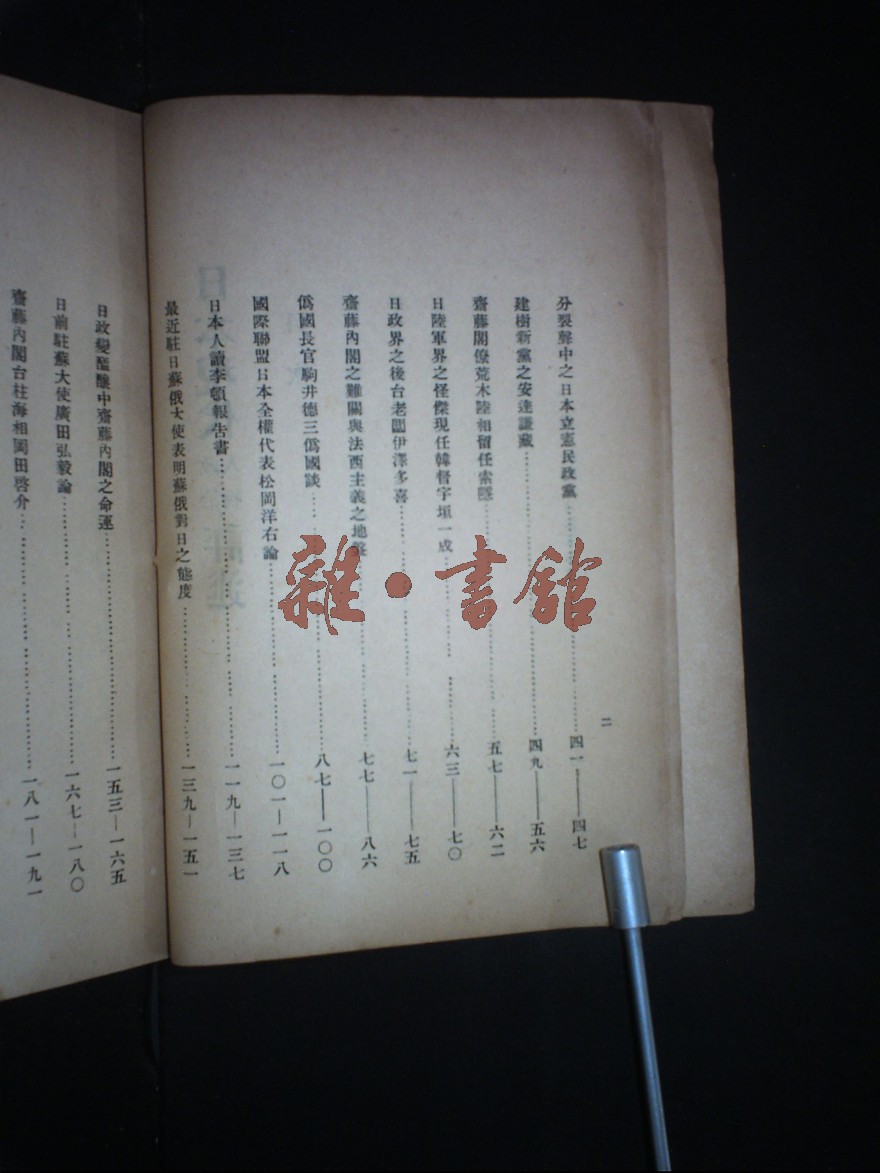 二
分裂聲中之日本立憲民政黨……四一——四七
建樹新黨之安達謙藏……四九——五六
齋藤閣僚荒木陸相留任索隱……五七——六二
日陸軍界之怪傑現任韓督宇垣一成……六三——七〇
日政界之後台老闆伊澤多喜……七一——七五
齋藤內閣之難關與法西主義之地盤……七七——八六
僞國長官駒井德三僞國談……八七——一〇〇
國際聯盟日本全權代表松岡洋右論……一〇一—一一八
日本人讀李頓報告書……一一九—一三七
最近駐日蘇俄大使表明蘇俄對日之態度……一三九—一五一
日政變醞釀中齋藤內閣之命運……一五三—一六五
日前駐蘇大使廣田弘毅論……一六七—一八〇
齋藤內閣台柱海相岡田啓介……一八一—一九一
雜·書館